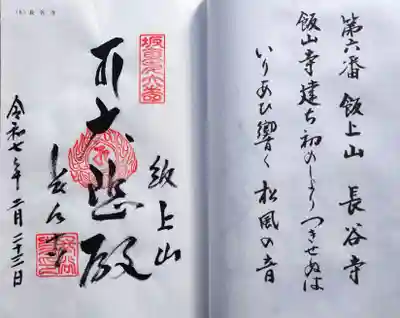 第六番 飯上山 長谷寺
飯山寺建ち初めしより つきせぬは
いりあひ響く 松風の音
飯上山
坂東第六番
大悲殿
長谷寺
令和七年二月二十三日